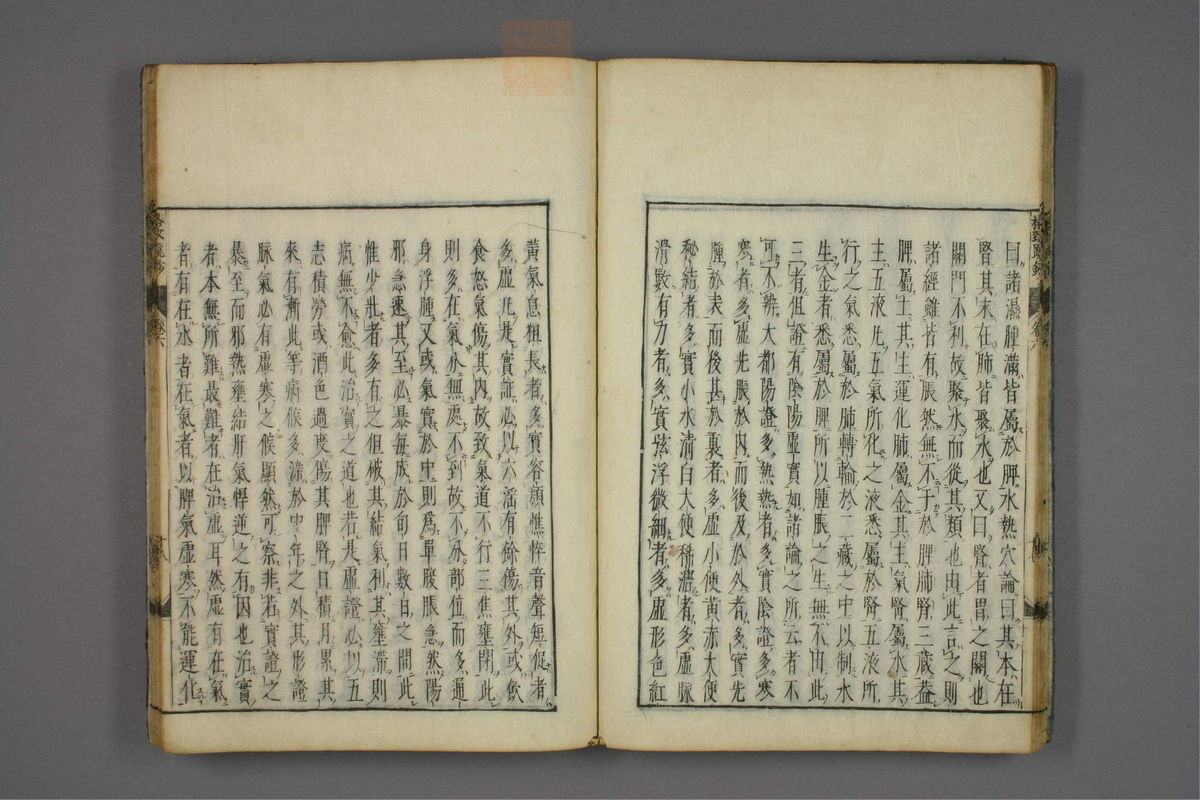 曰諸濕腫滿皆屬於脾水熱穴論曰其本在
腎其末在肺皆聚水也又曰腎者胃之關也
關門不利故聚水而從其類也由此言之則
諸經雖皆有脹然無不干於脾肺腎三藏蓋
脾屬土其主運化肺屬金其主氣腎屬水其
主五液凡五氣所化之液悉屬於腎五液所
行之氣悉屬於肺轉輸於二藏之中以制水
生金者悉屬於脾所以腫脹之生無不由此
三者但證有陰陽虛實如諸論之所云者不
可不辨大都陽證多熱熱者多實陰證多寒
寒者多虛先脹於內而後及於外者多實先
腫於表而後甚於裏者多虛小便黃赤大便
秘結者多實小水清白大便稀溏者多虛脈
滑數有力者多實弦浮微細者多虛形色紅
黃氣息粗長者多實容顏憔悴音聲短促者
多虛凡是實証必以六淫有餘傷其外或飲
食怒氣傷其內故致氣道不行三焦壅閉此
則多在氣分無處不到故不分部位而多遍
身浮腫又或氣實於中則為單腹脹急然陽
邪急速其至必暴每成於旬日數日之間此
惟少壯者多有之但破其結氣利其壅滯則
病無不愈此治實之道也若是虛證必以五
志積勞或酒色過度傷其脾腎日積月累其
來有漸此等病候多染於中年之外其形證
脈氣必有虛寒之候顯然可察非若實證之
暴至而邪熱壅結肝氣悍逆之有因也治實
者本無所難最難者在治虛耳然虛有在氣
者有在水者在氣者以脾氣虛寒不能運化